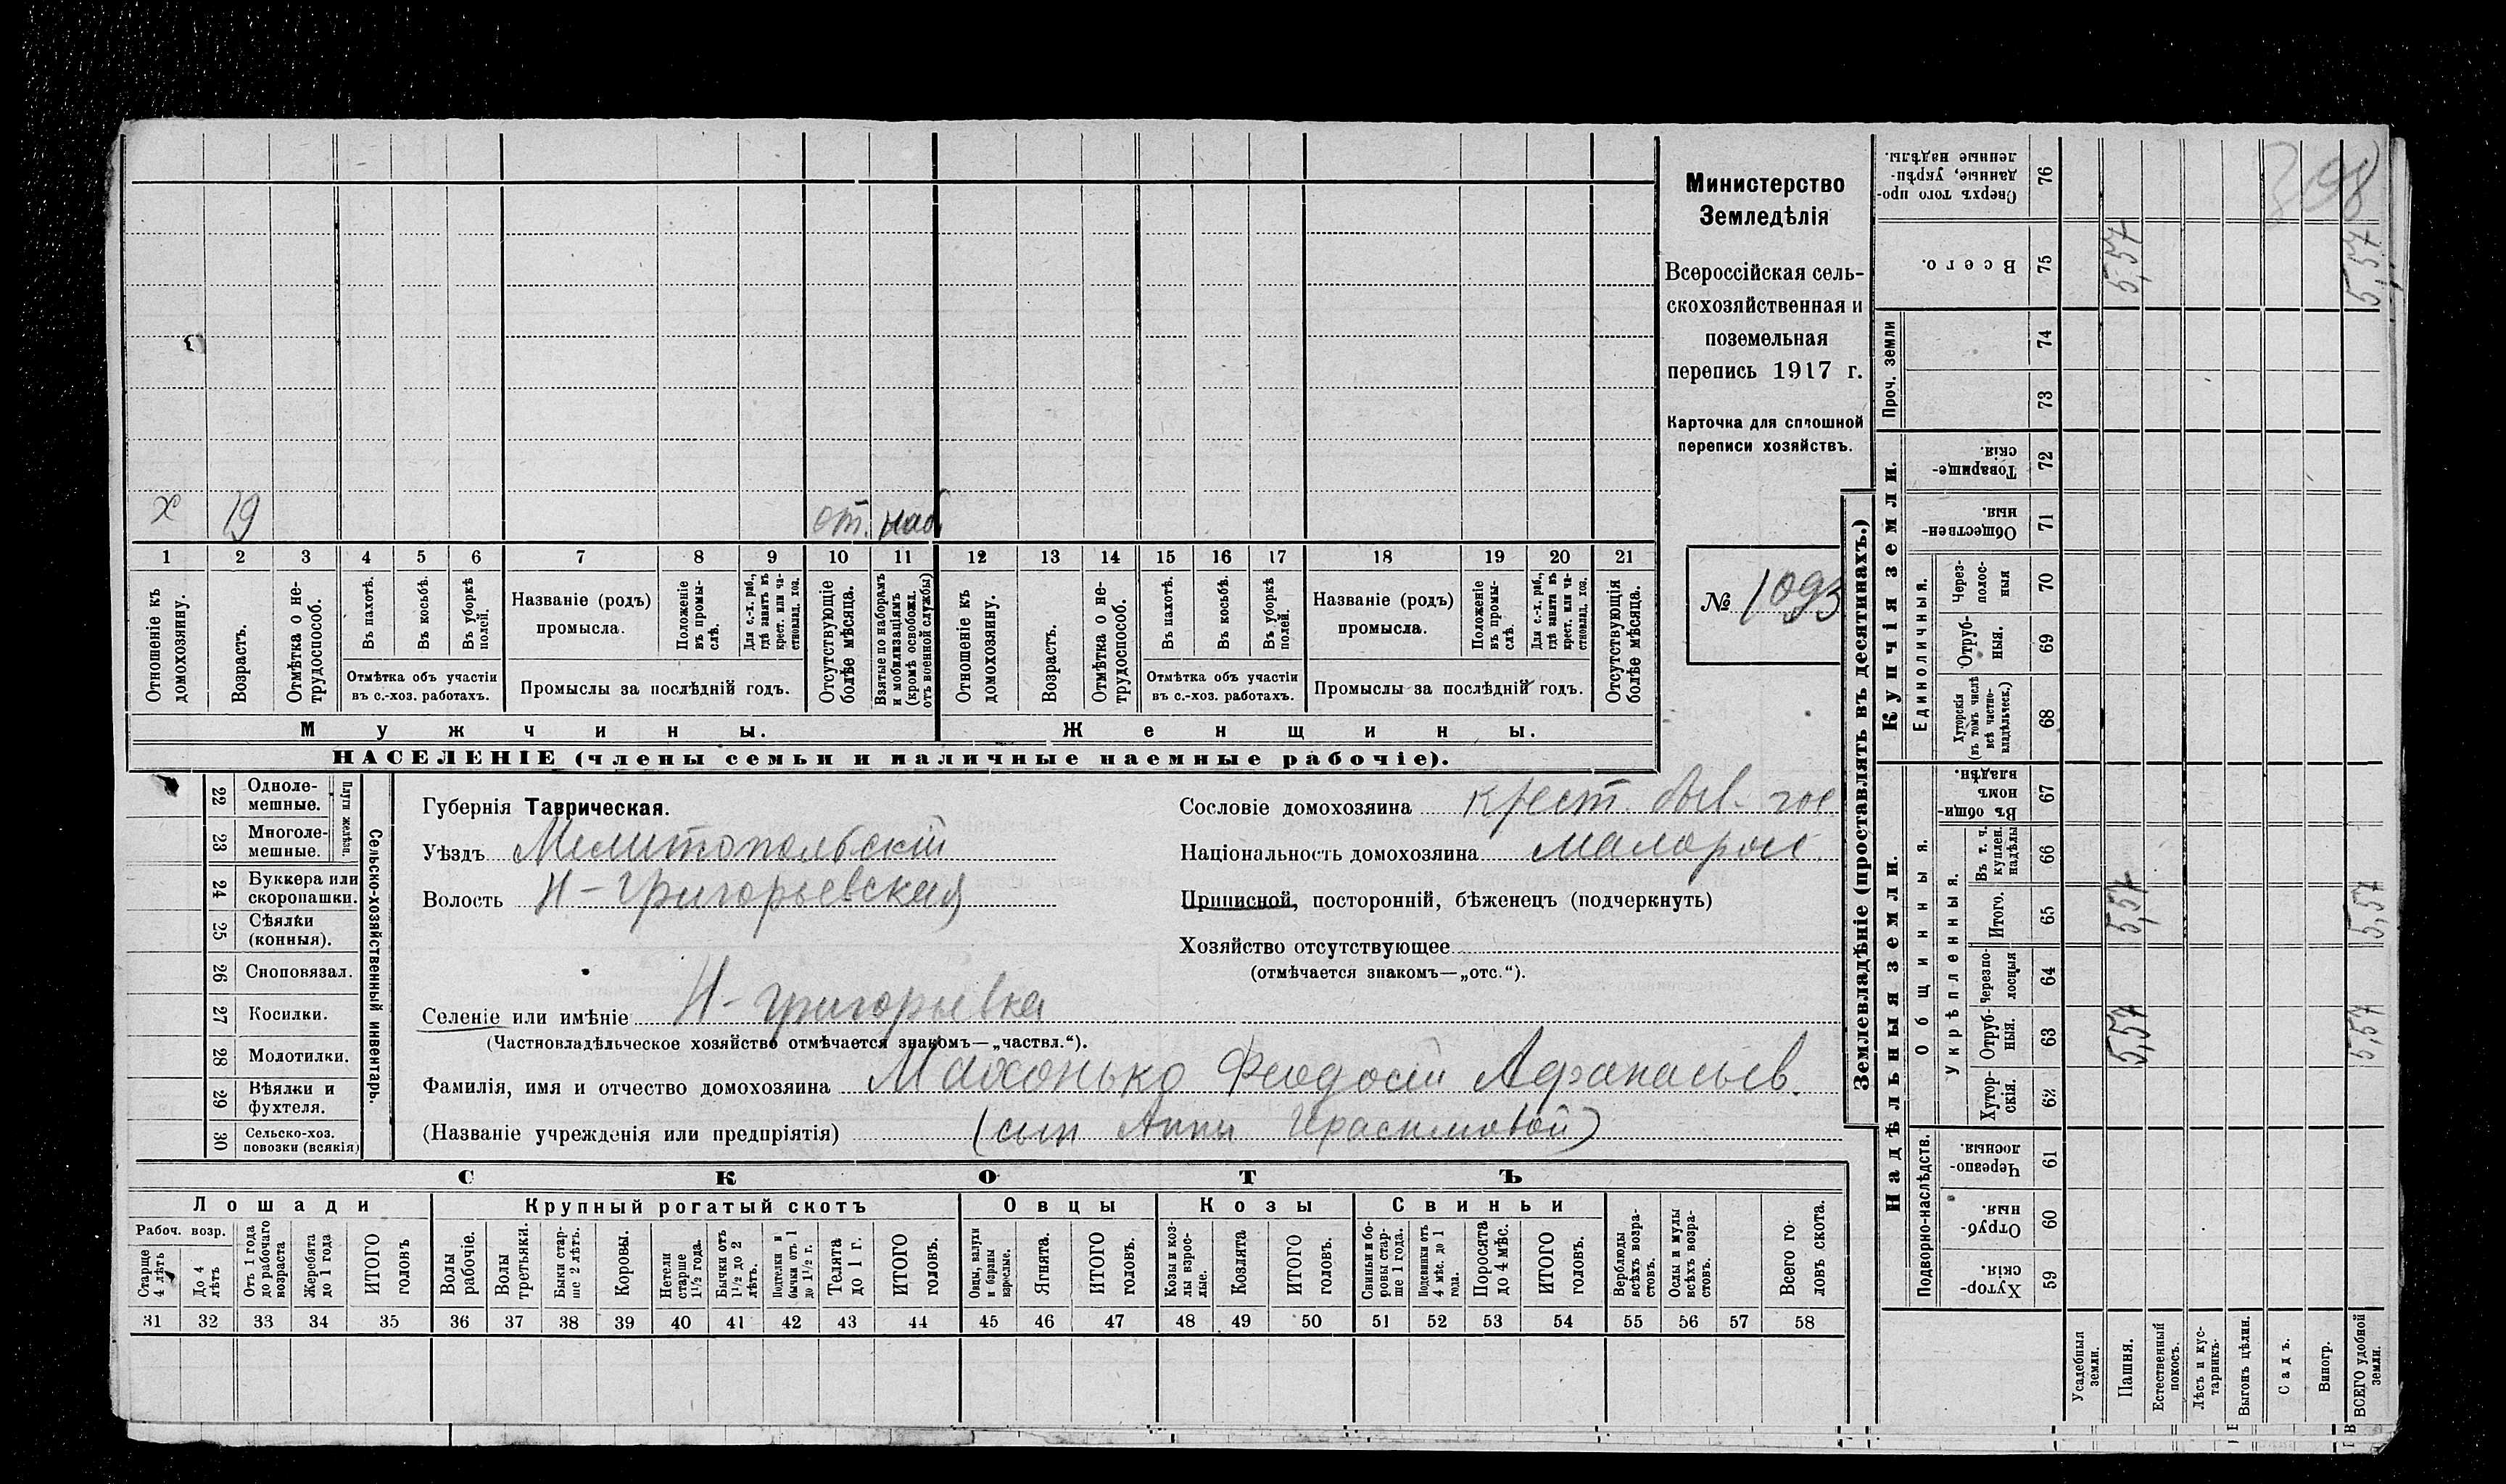 Министерство
Земледѣлія
Всероссійская сель-
скохозяйственная и
поземельная
перепись 1917 г.
Карточка для сплошной
переписи хозяйствъ.
№ 1093
398
х 19 от. наб
1 2 3 4 5 6 7 8 9 10 11 12 13 14 15 16 17 18 19 20 21
Отношеніе къ домохозяину.
Возрастъ.
Отмѣтка о не-трудоспособ.
Въ пахотѣ.
Въ косьбѣ.
Въ уборкѣ полей.
Отмѣтка объ участіи
въ с.-хоз. работахъ.
Названіе (родъ)
промысла.
Положеніе въ промы-слѣ.
Для с.-х. раб., гдѣ занятъ въ крест. или ча-стновлад. хоз.
Промыслы за послѣдній годъ.
Отсутствующіе болѣе мѣсяца.
Взятые по наборамъ и мобилизаціямъ (кромѣ освобожд. отъ военной службы)
Отношеніе къ домохозяину.
Возрастъ.
Отмѣтка о не-трудоспособ.
Въ пахотѣ.
Въ косьбѣ.
Въ уборкѣ полей.
Отмѣтка объ участіи
въ с.-хоз. работахъ.
Названіе (родъ)
промысла.
Положеніе въ промы-слѣ.
Для с.-х. раб., гдѣ занята въ крест. или ча-стновлад. хоз.
Промыслы за послѣдній годъ.
Отсутствующія болѣе мѣсяца.
Мужчины.
Женщины.
НАСЕЛЕНІЕ (члены семьи и наличные наемные рабочіе).
22 Одноле-мешные.
23 Многоле-мешные.
Плуги желѣзн.
24 Буккера или скоропашки.
25 Сѣялки (конныя).
26 Сноповязал.
27 Косилки.
28 Молотилки.
29 Вѣялки и фухтеля.
30 Сельско-хоз. повозки (всякія)
Сельско-хозяйственный инвентарь.
Губернія Таврическая.
Уѣздъ Мелитопольскій
Волость Н-Григорьевская
Сословіе домохозяина крест. быв. гос
Національность домохозяина малорос.
Приписной, посторонній, бѣженецъ (подчеркнуть)
Хозяйство отсутствующее
(отмѣчается знакомъ—„отс.“).
Селеніе или имѣніе Н-Григорьевка
(Частновладѣльческое хозяйство отмѣчается знакомъ—„частвл.“).
Фамилія, имя и отчество домохозяина Махонько Феодосій Афанасьев.
(Названіе учрежденія или предпріятія) (сын Анны Герасимовой)
СКОТЪ
Лошади
Рабоч. возр.
Старше 4 лѣтъ
До 4 лѣтъ
Отъ 1 года до рабочаго возраста
Жеребята до 1 года
ИТОГО головъ
Крупный рогатый скотъ
Волы рабочіе.
Волы третьяки.
Быки стар-ше 2 лѣтъ.
Коровы.
Нетели старше 1½ года.
Бычки отъ 1½ до 2 лѣтъ.
Подтелки и бычки отъ 1 до 1½ г.
Телята до 1 г.
ИТОГО головъ.
Овцы
Овцы, валухи и бараны взрослые.
Ягнята.
ИТОГО головъ.
Козы
Козы и коз-лы взрос-лые.
Козлята
ИТОГО головъ.
Свиньи
Свиньи и бо-ровы стар-ше 1 года.
Подсвинки отъ 4 мѣс. до 1 года.
Поросята до 4 мѣс.
ИТОГО головъ.
Верблюды всѣхъ возра-стовъ.
Ослы и мулы всѣхъ возра-стовъ.
Всего го-ловъ скота.
31 32 33 34 35 36 37 38 39 40 41 42 43 44 45 46 47 48 49 50 51 52 53 54 55 56 57 58
Землевладѣніе (проставлять въ десятинахъ.)
Надѣльныя земли.
Подворно-наслѣдств.
59 Хутор-скія.
60 Отруб-ныя.
61 Черезпо-лосныя
Общинныя.
Укрѣпленныя.
62 Хутор-скія.
63 Отруб-ныя. 5,57 5,57
64 Черезпо-лосныя
65 Итого. 5,57 5,57
66 Въ т. ч. куплен. надѣлы
67 Въ общи-номъ владѣн.
Купчія земли.
Единоличныя.
68 Хуторскія (въ томъ числѣ всѣ частно-владѣльческ.)
69 Отруб-ныя.
70 Через-полос-ныя
71 Обществен-ныя.
72 Товарище-скія.
Проч. земли
73
74
75 Всего. 5,57 5,57
76 Сверхъ того про-данные, укрѣп-ленные надѣлы.
Усадебныя земли.
Пашня.
Естественный покосъ.
Лѣсъ и кус-тарникъ.
Выгонъ цѣлин.
Садъ.
Виногр.
ВСЕГО удобной земли.